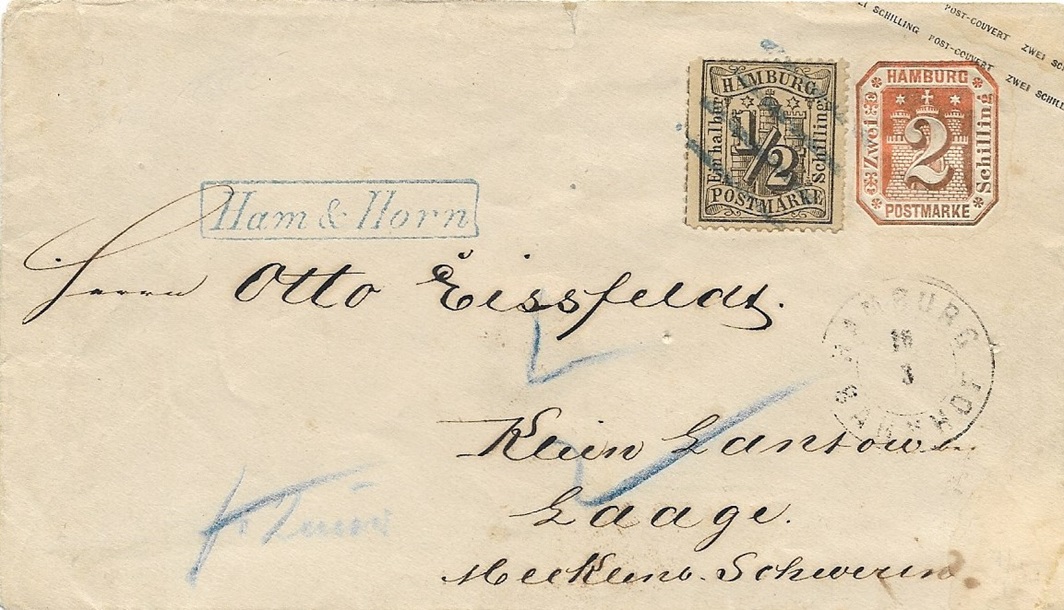 EI SCHILLING POST-COUVERT ZWEI SCHILLE
POST-COUVERT ZWEI SC
HAMBURG
Ein halber
1/2
Schilling
POSTMARKE
HAMBURG
Zwei
2
Schilling
POSTMARKE
Ham & Horn
Herrn Otto Eissfeldt.
HAMBURG
18
3
BAHNHOF
Klein Lantow
Laage.
Mecklenb. Schwerin